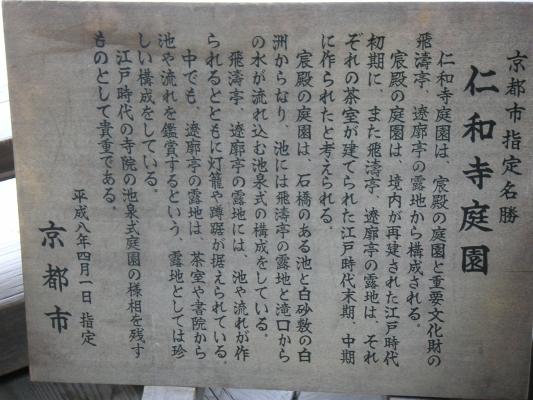 京都市指定名勝
仁和寺庭園
仁和寺庭園は、宸殿の庭園と重要文化財の
飛濤亭、遼廓亭の露地から構成される。
宸殿の庭園は、境内が再建された江戸時代
初期に、また飛濤亭、遼廓亭の露地は、それ
ぞれの茶室が建てられた江戸時代末期、中期
に作られたと考えられる。
宸殿の庭園は、石橋のある池と白砂敷の白
洲からなり、池には飛濤亭の露地と滝口から
の水が流れ込む池泉式の構成をしている。
飛濤亭、遼廓亭の露地には、池や流れが作
られるとともに灯籠や蹲踞が据えられている。
中でも、遼廓亭の露地は、茶室や書院から
池や流れを鑑賞するという、露地としては珍
しい構成をしている。
江戸時代の寺院の池泉式庭園の様相を残す
ものとして貴重である。
平成八年四月一日 指定
京都市